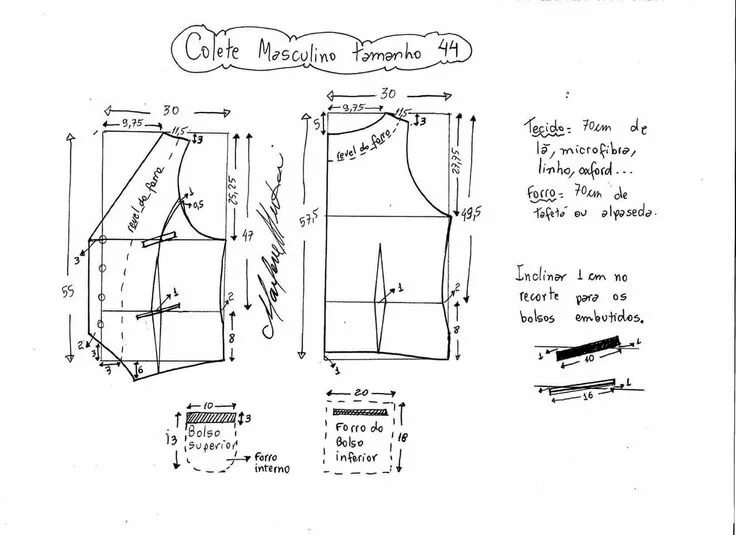 Colete Masculino tamanho 44
30
9,75
11,5
3
revel do forro
1
0,5
25,25
47
55
3
1
2
2
3
3
6
8
30
9,75
11,5
5
3
revel do forro
27,75
57,5
49,5
1
2
8
Tecido = 70cm de
lã, microfibra,
linho, oxford...
Forro = 70cm de
tafetá ou alpaseda.
Inclinar 1 cm no
recorte para os
bolsos embutidos.
1
10
1
1
16
1
10
13
3
Bolso
superior
Forro
interno
20
18
Forro do
Bolso
inferior